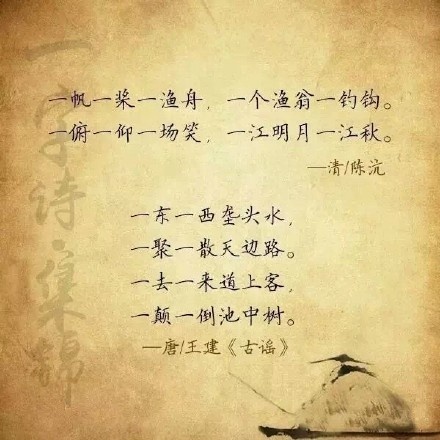 一字诗·集锦
一帆一桨一渔舟，一个渔翁一钓钩。
一俯一仰一场笑，一江明月一江秋。
—清/陈沆
一东一西垄头水，
一聚一散天边路。
一去一来道上客，
一颠一倒池中树。
—唐/王建《古谣》